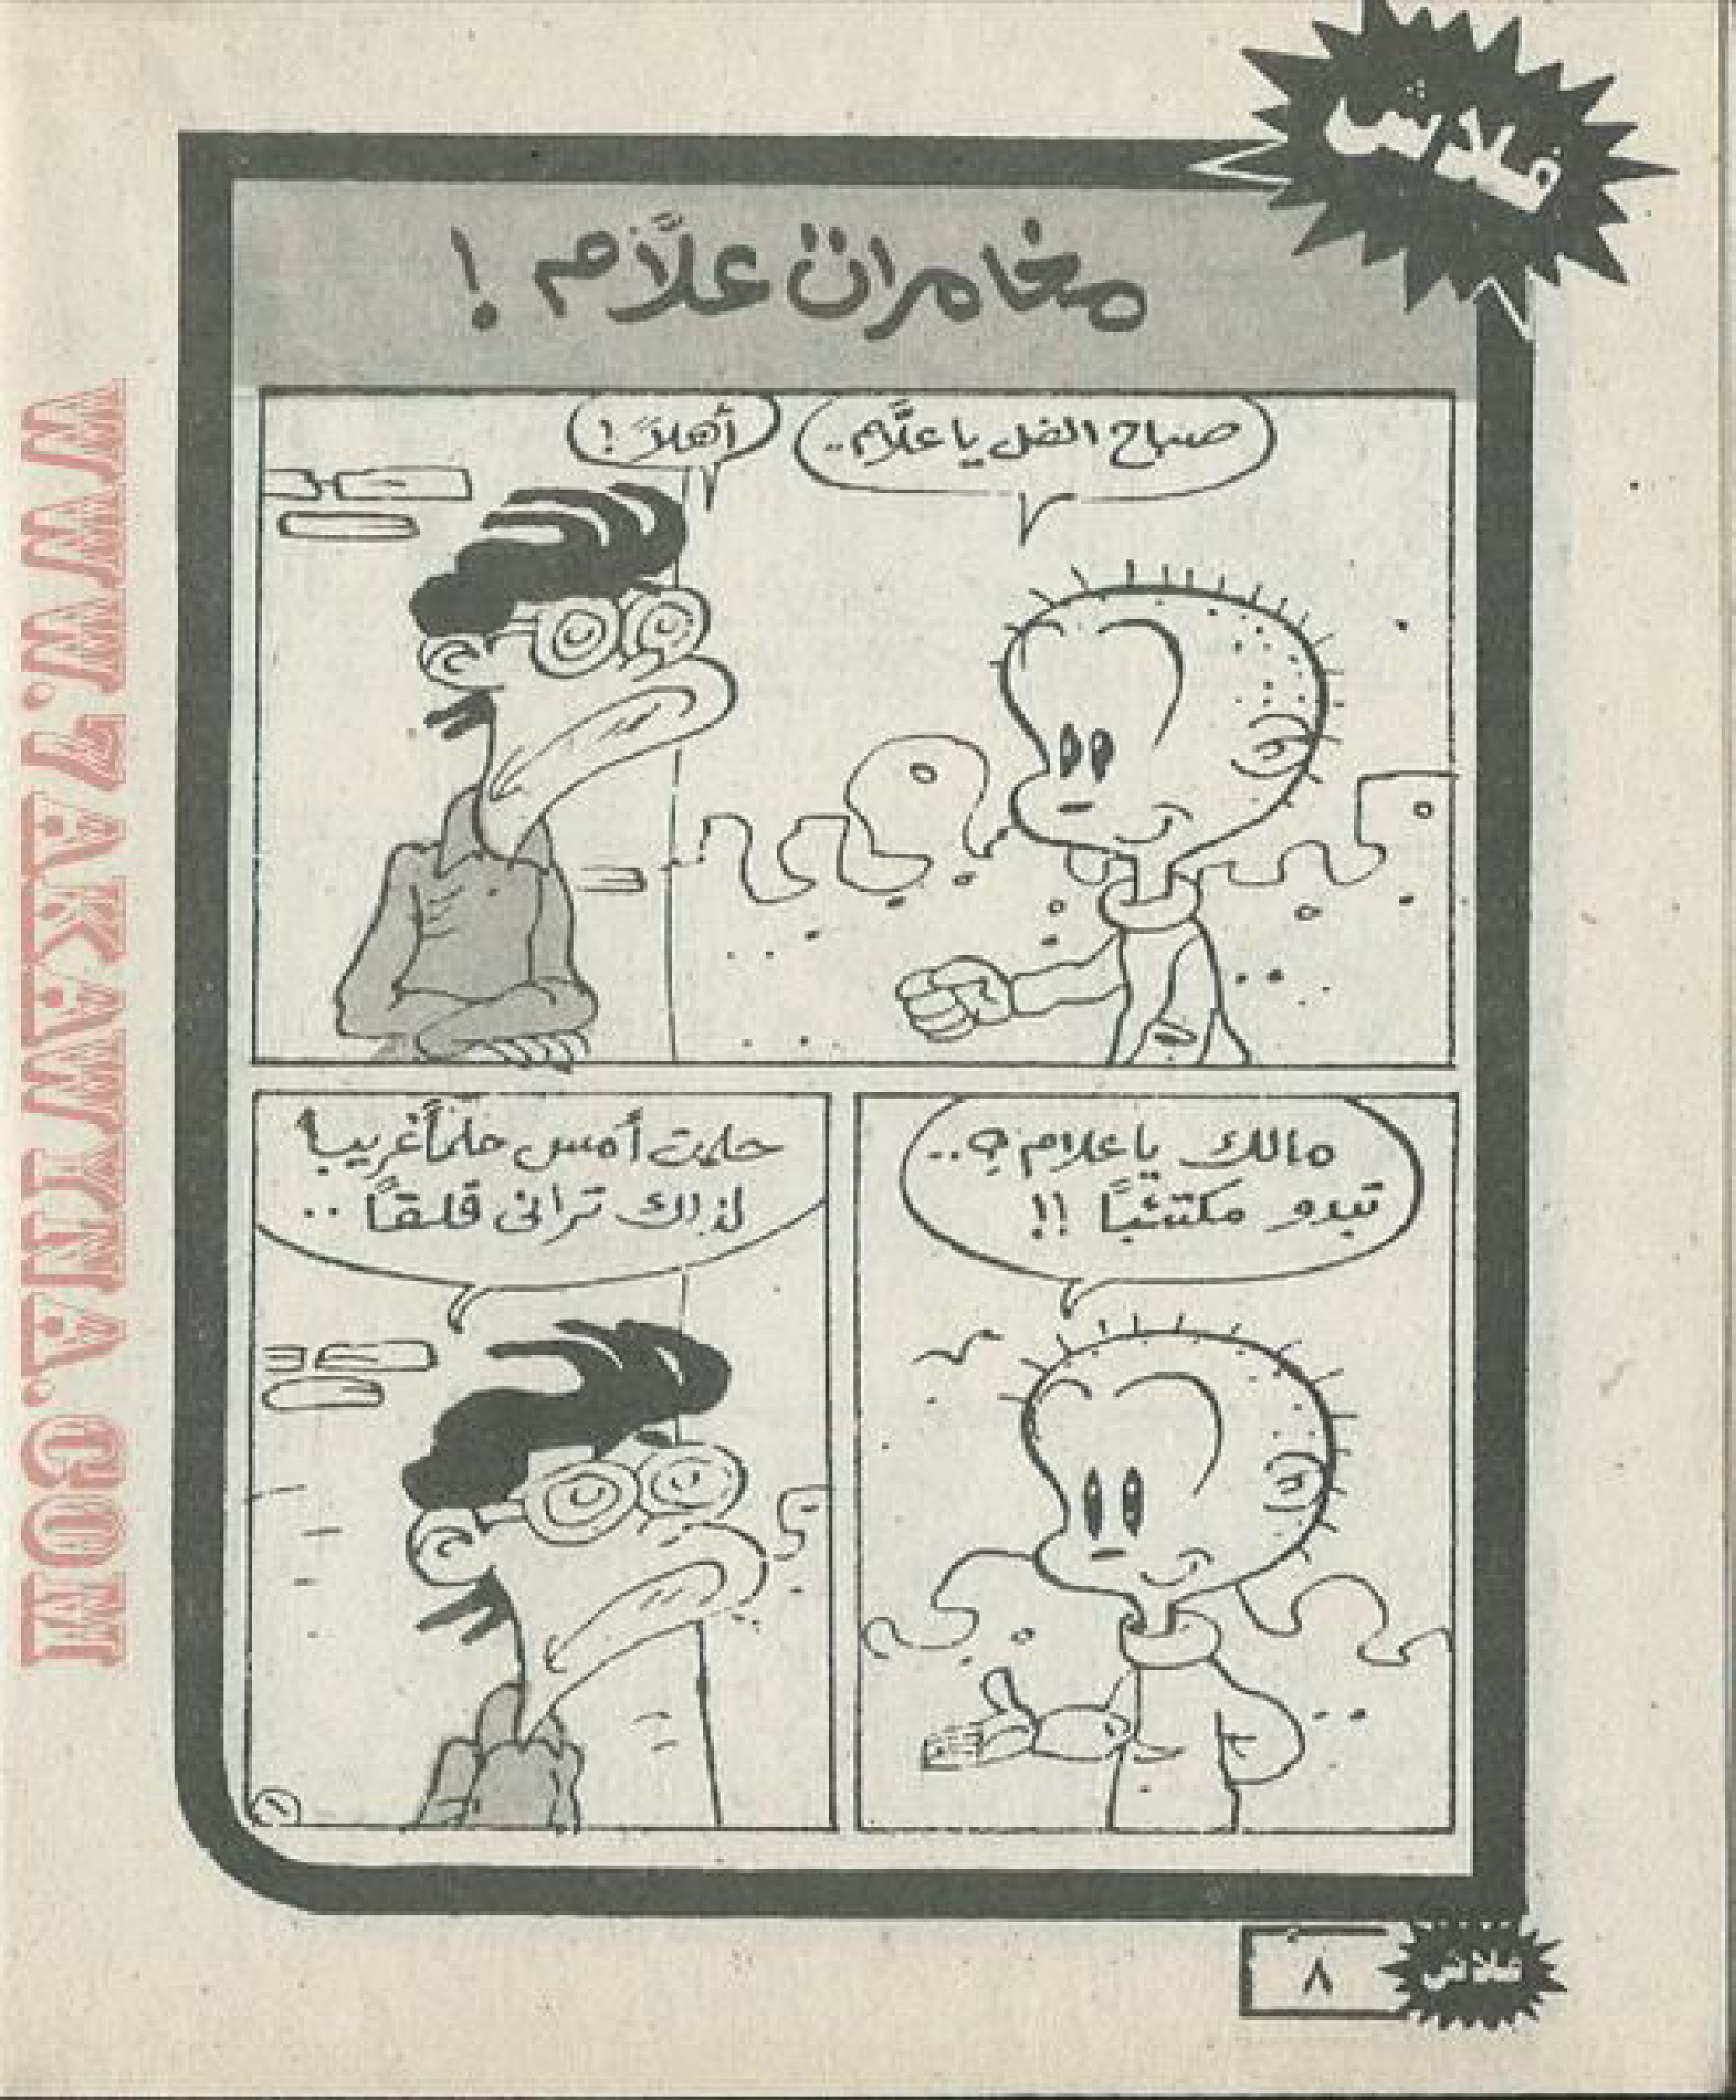 فلاش
مغامرات علاَّم !
صباح الفل يا علاَّم..
أهلاً !
مالك يا علام ؟..
تبدو مكتئباً !!
حلمت أمس حلماً غريباً
لذلك ترانى قلقاً ..
١
٨
فلاش
WWW.7AKAWITNA.COM